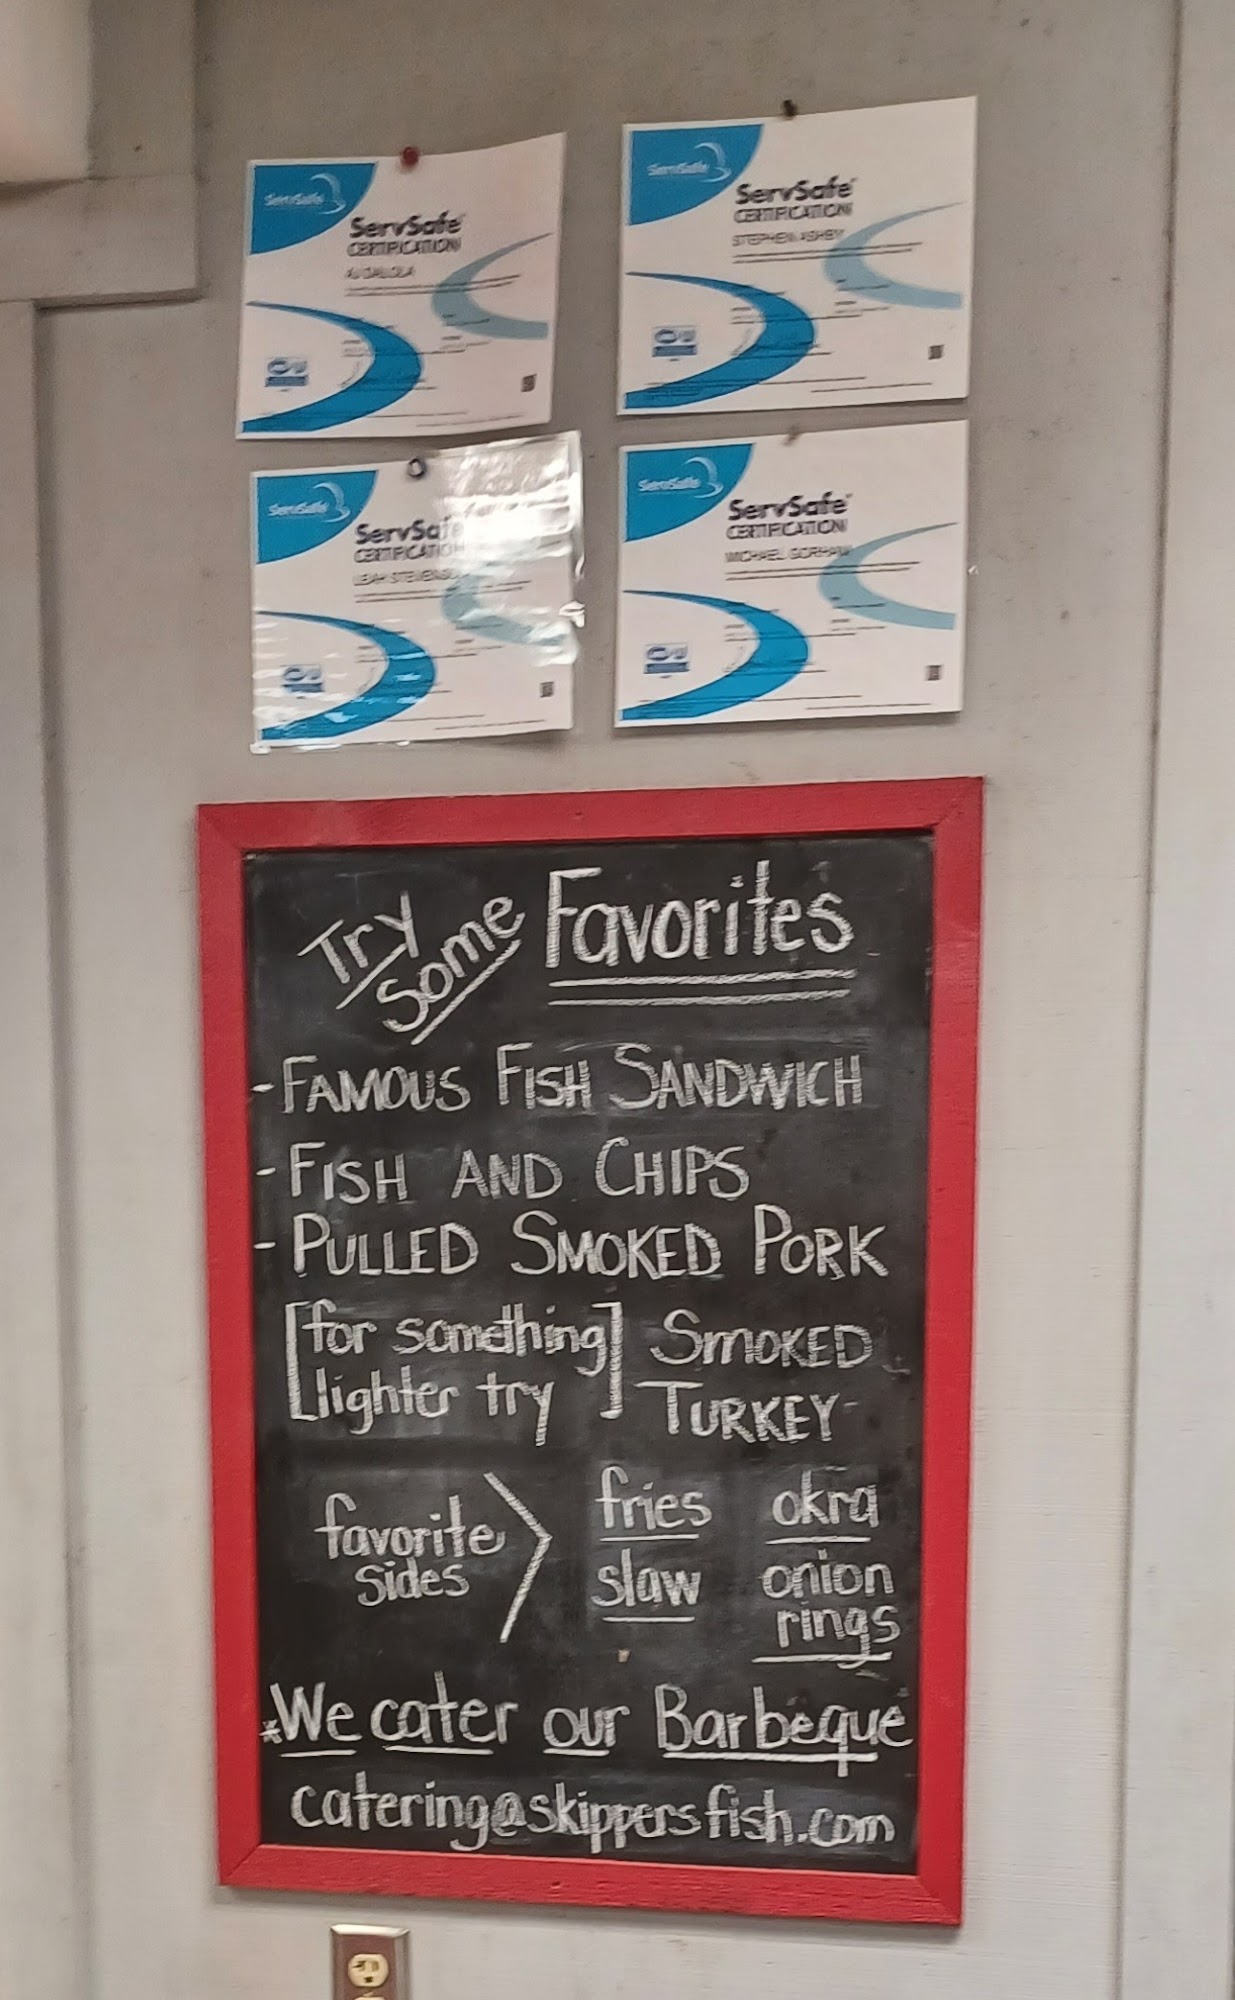 ServSafe
ServSafe®
CERTIFICATION
ServSafe
ServSafe®
CERTIFICATION
STEPHEN ASHBY
ServSafe
ServSafe
CERTIFICATION
LEAH
ServSafe
ServSafe®
CERTIFICATION
MICHAEL GORHAM
Try
Some
Favorites
- FAMOUS FISH SANDWICH
- FISH AND CHIPS
- PULLED SMOKED PORK
[for something] SMOKED
[lighter try] TURKEY
favorite
sides
fries okra
slaw onion
rings
*We cater our Barbeque
catering@skippersfish.com